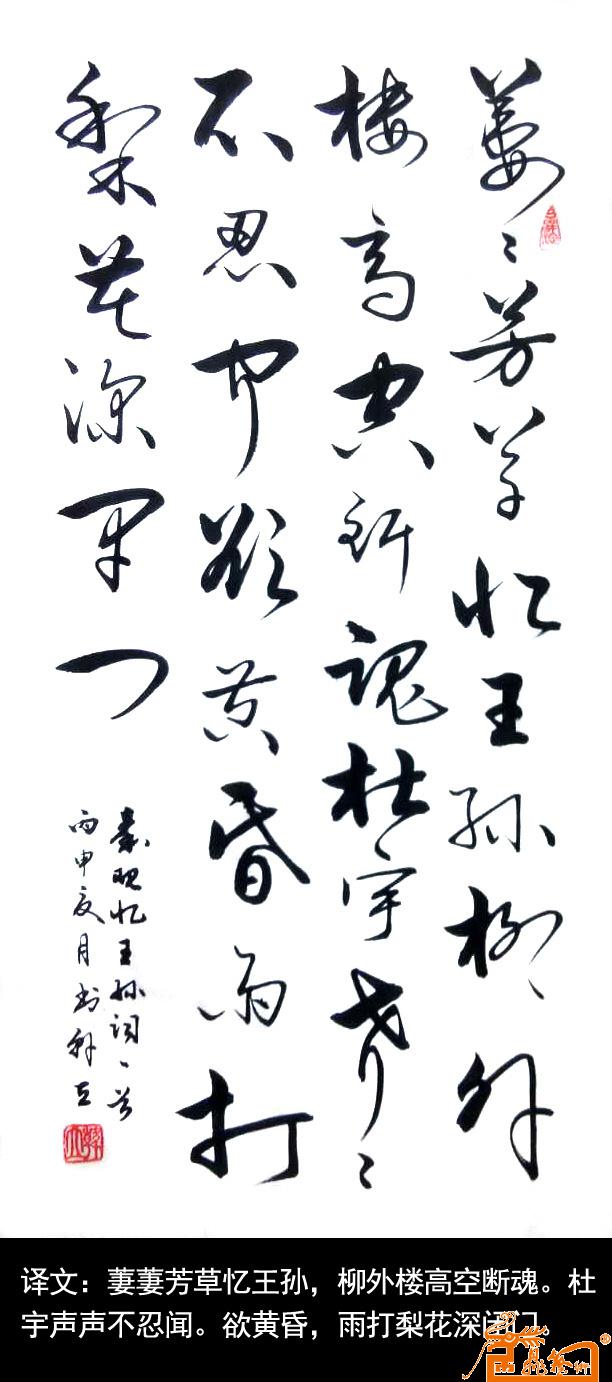 萋〻芳草忆王孙柳外
楼高空断魂杜宇声〻
不忍闻欲黄昏雨打
梨花深闭门
秦观忆王孙词一首
丙申夏月书
译文：萋萋芳草忆王孙，柳外楼高空断魂。杜
宇声声不忍闻。欲黄昏，雨打梨花深闭门。